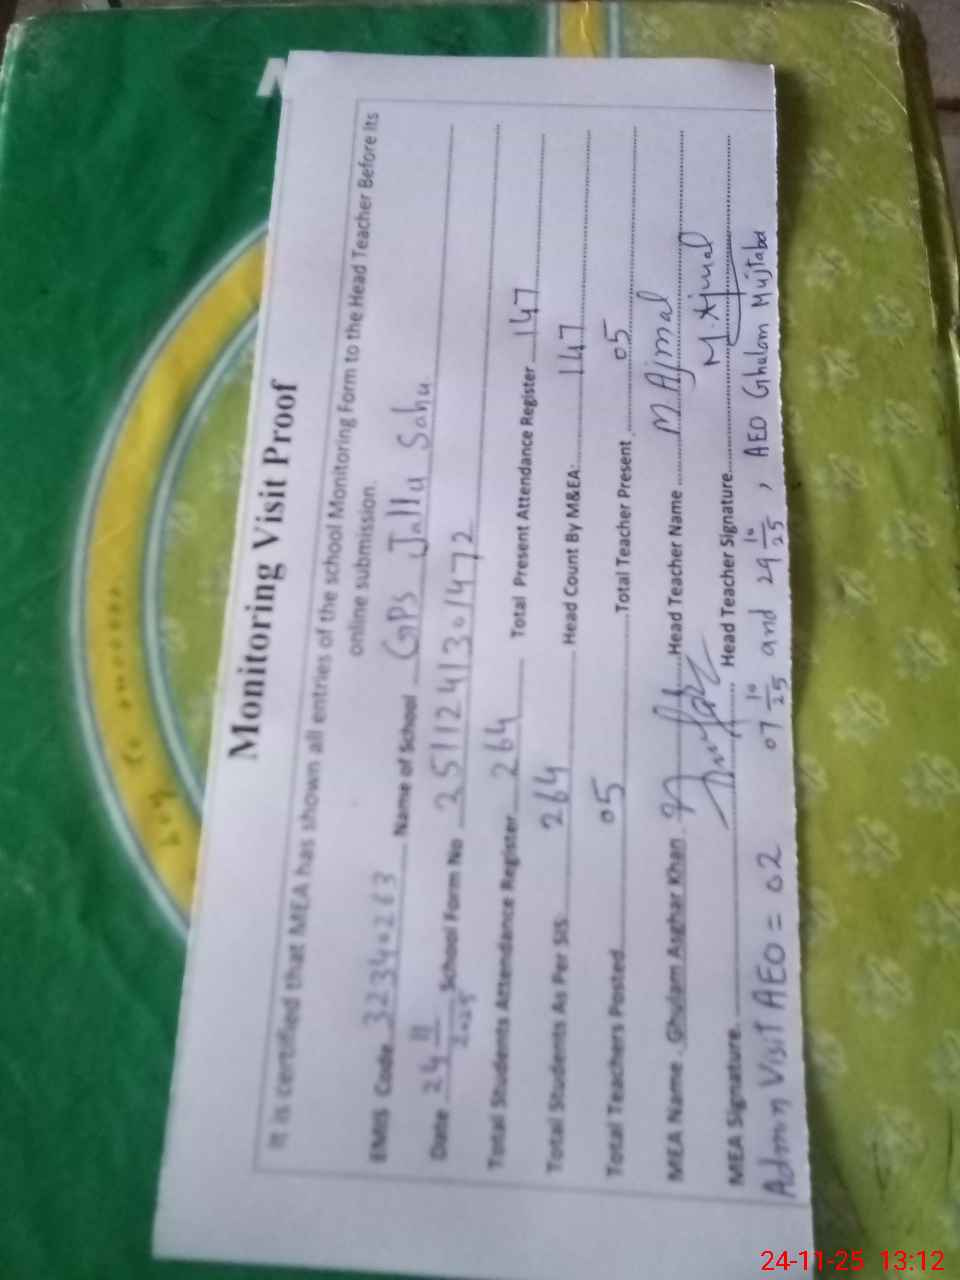 Monitoring Visit Proof
It is certified that MEA has shown all entries of the school Monitoring Form to the Head Teacher Before its
online submission.
EMIS Code 32340263 Name of School GPS Jallu Sahu.
Date 24 11/2025 School Form No 2511241301472
Total Students Attendance Register 264 Total Present Attendance Register 147
Total Students As Per SIS: 264 Head Count By M&EA: 147
Total Teachers Posted 05 Total Teacher Present 05
MEA Name. Ghulam Asghar Khan Head Teacher Name M Ajmal
MEA Signature. Head Teacher Signature M. Ajmal
Admn Visit AEO = 02 07 10/25 and 29 10/25, AEO Ghulam Mujtaba
24-11-25 13:12